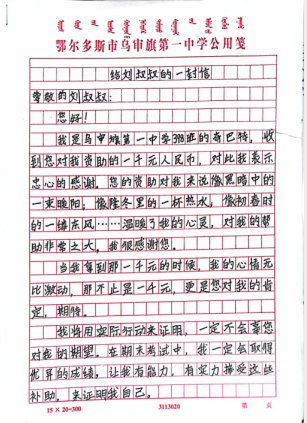 鄂尔多斯市乌审旗第一中学公用笺
给刘叔叔的一封信
尊敬的刘叔叔：
您好！
我是乌审旗第一中学398班的奇巴特，收
到您对我资助的一千元人民币，对此我表示
忠心的感谢。您的资助对我来说像黑暗中的
一束暖阳，像隆冬里的一杯热水，像初春时
的一缕东风……温暖了我的心灵，对我的帮
助非常之大，我很感谢您。
当我拿到那一千元的时候，我的心情无
比激动，那不止是一千元，更是您对我的肯
定，期待。
我将用实际行动来证明，一定不会辜您
对我的期望。在期末考试中，我一定会取得
优异的成绩，让我有能力，有实力接受这些
补助，来证明我自己。
15×20=300
3113020
第 页